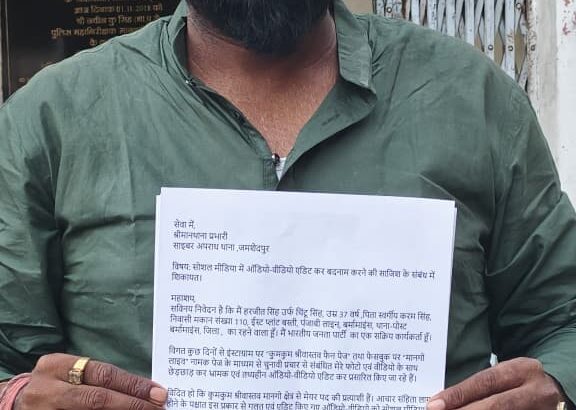 आज दिनांक 01.11.2018 को
पुलिस महानिरीक्षक
सेवा में,
श्रीमानथाना प्रभारी
साइबर अपराध थाना ,जमशेदपुर
विषय: सोशल मीडिया में ऑडियो-वीडियो एडिट कर बदनाम करने की साजिश के संबंध में
शिकायत।
महाशय,
सविनय निवेदन है कि मैं हरजीत सिंह उर्फ चिंटू सिंह, उम्र 37 वर्ष ,पिता स्वर्गीय करम सिंह,
निवासी मकान संख्या 110, ईस्ट प्लांट बस्ती, पंजाबी लाइन, बर्मामाइंस, थाना-पोस्ट
बर्मामाइंस, जिला, का रहने वाला हूँ। मैं भारतीय जनता पार्टी का एक सक्रिय कार्यकर्ता हूँ।
विगत कुछ दिनों से इंस्टाग्राम पर “कुमकुम श्रीवास्तव फैन पेज” तथा फेसबुक पर “मानगो
लाइव” नामक पेज के माध्यम से चुनावी प्रचार से संबंधित मेरे फोटो एवं वीडियो के साथ
छेड़छाड़ कर भ्रामक एवं तथ्यहीन ऑडियो-वीडियो एडिट कर प्रसारित किए जा रहे हैं।
विदित हो कि कुमकुम श्रीवास्तव मानगो क्षेत्र से मेयर पद की प्रत्याशी हैं। आचार संहिता लागू
होने के पश्चात इस प्रकार से गलत एवं एडिट किए गए ऑडियो-वीडियो को सोशल